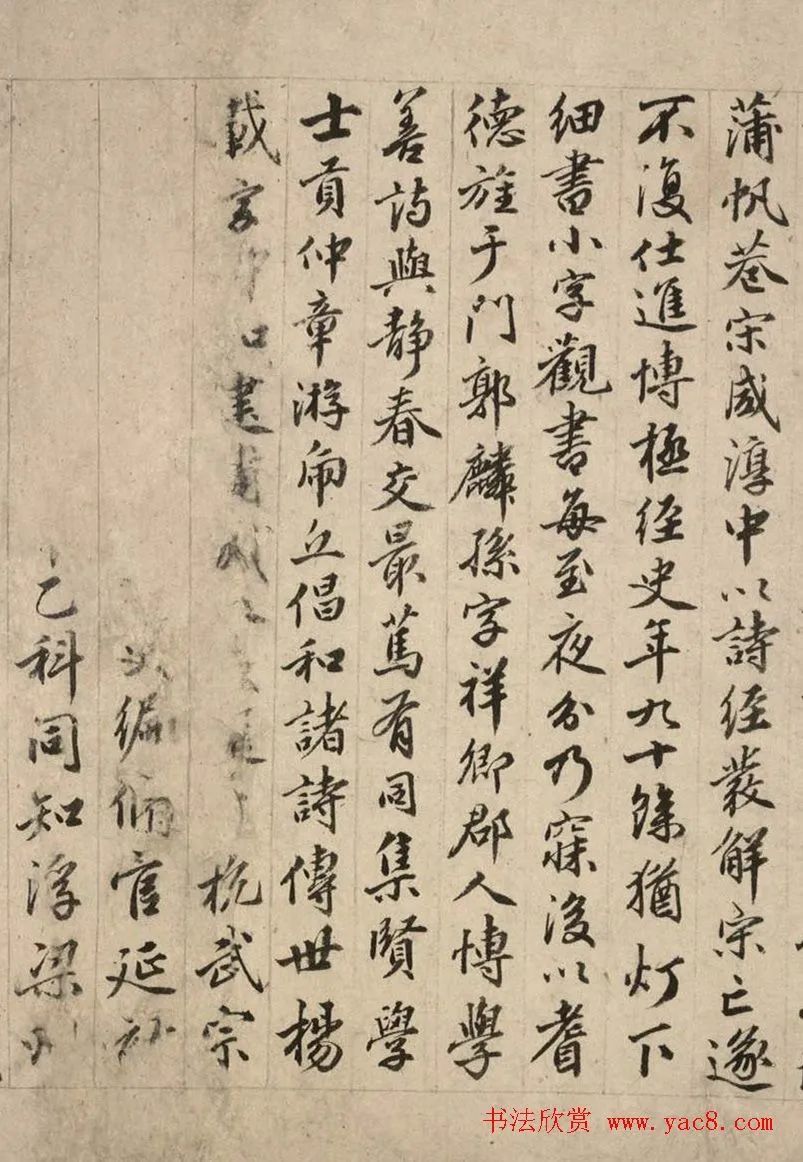 蒲帆巷宋咸淳中以詩經發解宋亡遂
不復仕進博極經史年九十餘猶灯下
細書小字觀書每至夜分乃寐後以耆
德旌于門郭麟孫字祥卿郡人博學
善詩與靜春交最篤有同集賢學
士貢仲章游虎丘倡和諸詩傳世楊
載字仲弘 杭武宗
編脩官延祐
乙科同知浮梁州
书法欣赏 www.yac8.com